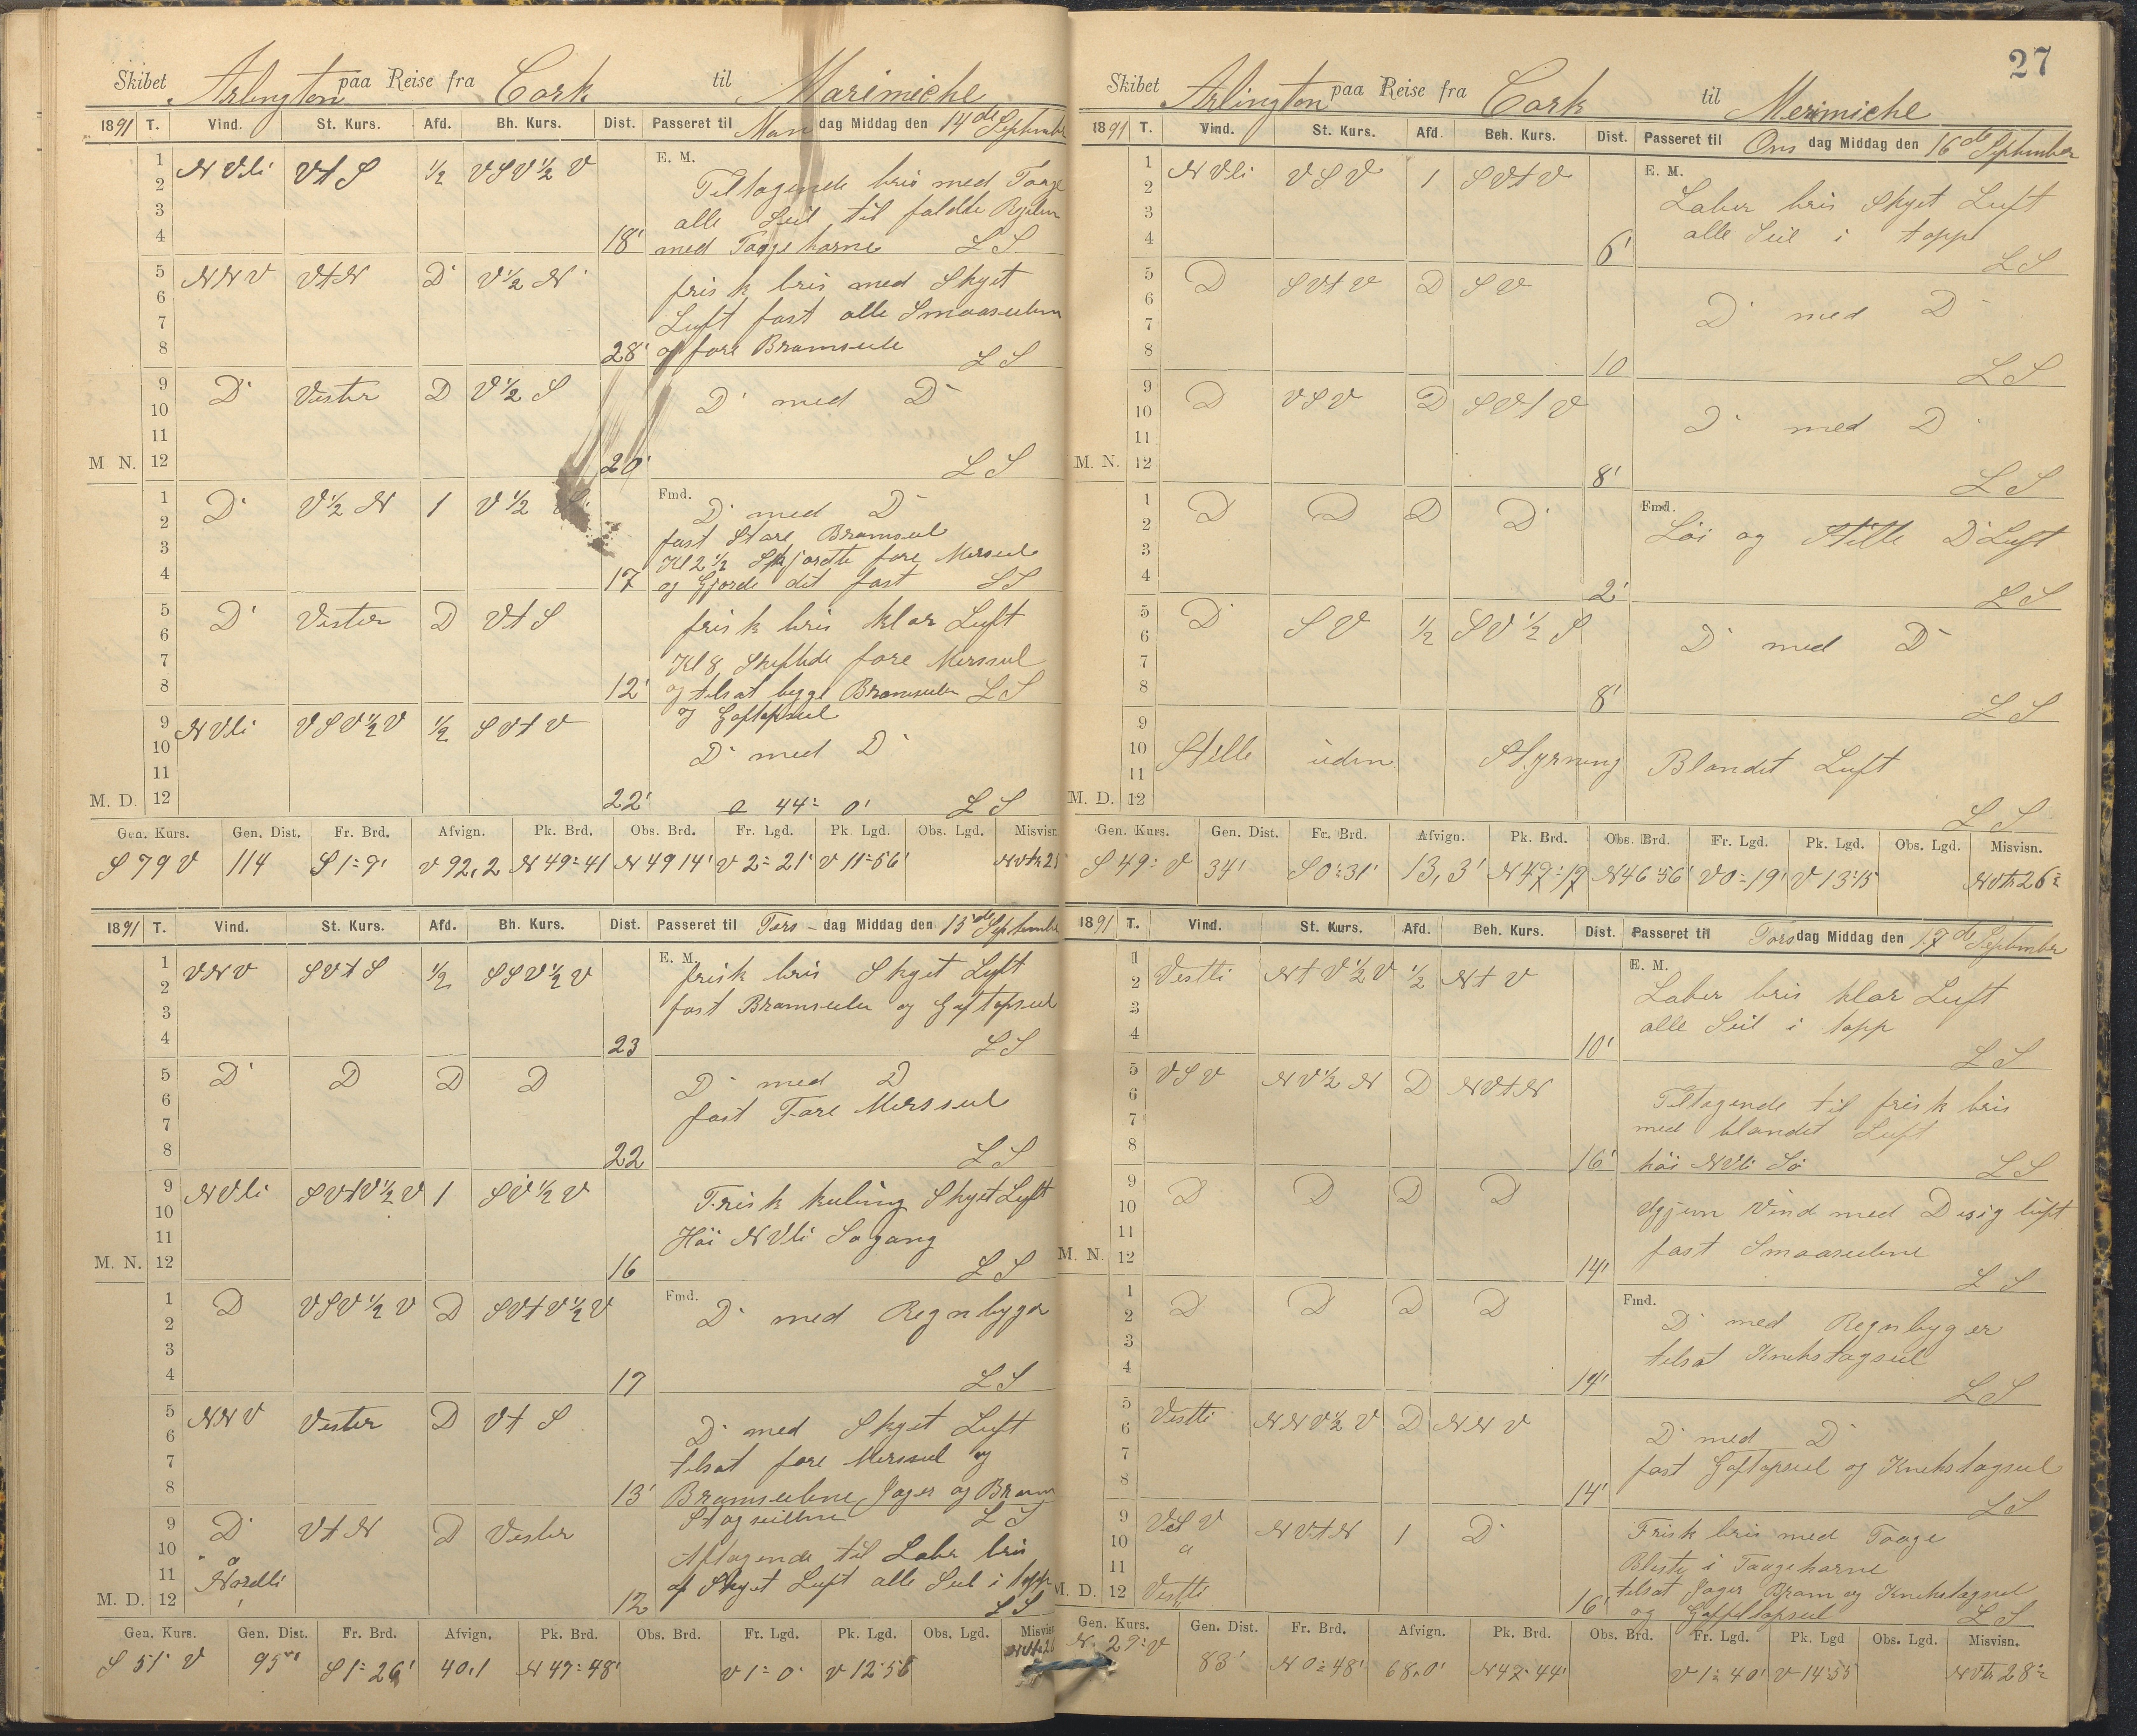 Skibet Arlington paa Reise fra Cork til Marimiche
1891 T. Vind. St. Kurs. Afd. Bh. Kurs. Dist. Passeret til Man dag Middag den 14de September
E. M.
1 N Vli VtS ½ VSV½V Tiltagende bris med Taage
2 alle Seil til faldte Rgelen
3
4 18' med Taagehorne LS
5 NNV VtN D V½N frisk bris med Skyet
6 Luft fast alle Smaaseilene
7
8 28' og fore Bramseile LS
9 D Vester D V½S D med D
10
11
M N. 12 20' LS
Fmd.
1 D V½N 1 V½S D med D
2 fast Store Bramseil
3 Kl 2½ Skjordte fore Merseil
4 17 og Gjorde det fast LS
5 D Vester D VtS frisk bris klar Luft
6
7 Kl 8 Skiftede fore Merseil
8 12' og tilsat begge Bramseiler LS
9 NVli VSV½V ½ SVtV og Gaftopseil
10 D med D
11
M. D. 12 22' a 44- 0' LS
Gen. Kurs. Gen. Dist. Fr. Brd. Afvign. Pk. Brd. Obs. Brd. Fr. Lgd. Pk. Lgd. Obs. Lgd. Misvisn.
S 79 V 114 S 1-9' V 92,2 N 49-41 N 49 14' V 2-21' V 11-56'
1891 T. Vind. St. Kurs. Afd. Bh. Kurs. Dist. Passeret til Tors- dag Middag den 15de September
E. M.
1 VNV SVtS ½ SSV½V frisk bris Skyet Luft
2 fast Bramseiler og Gaftopseil
3
4 23 LS
5 D D D D D med D
6 fast Fore Merseil
7
8 22 LS
9 NVli SVtV½V 1 SV½V Frisk kuling Skyet Luft
10 Høi NVli Søgang
11
M. N. 12 16 LS
Fmd.
1 D VSV½V D SVtV½V D med Regnbyger
2
3
4 17 LS
5 NNV Vester D VtS D med Skyet Luft
6 tilsat fore Merseil og
7
8 13' Bramseilene Jager og Bram
9 D VtN D Vester Stagseilene LS
10 Aftagende til Laber bris
11 Nordli af Skyet Luft alle Seil i topp
M. D. 12 12 LS
Gen. Kurs. Gen. Dist. Fr. Brd. Afvign. Pk. Brd. Obs. Brd. Fr. Lgd. Pk. Lgd. Obs. Lgd. Misvisn.
S 51 V 95 S 1-26' 40,1 N 47-48' V 1-0' V 12-56
27
Skibet Arlington paa Reise fra Cork til Merimiche
1891 T. Vind. St. Kurs. Afd. Beh. Kurs. Dist. Passeret til Ons dag Middag den 16de September
E. M.
1 NVli VSV 1 SVtV Laber bris Skyet Luft
2
3 alle Seil i topp
4 6' LS
5 D SVtV D SV D med D
6
7
8 10 LS
9 D VSV D SVtV D med D
10
11
M. N. 12 8' LS
Fmd.
1 D D D D Løi og Stille D Luft
2
3
4 2' LS
5 D SV ½ SV½S D med D
6
7
8 8' LS
9
10 Stille uden Styrning Blandet Luft
11
M. D. 12 LS
Gen. Kurs. Gen. Dist. Fr. Brd. Afvign. Pk. Brd. Obs. Brd. Fr. Lgd. Pk. Lgd. Obs. Lgd. Misvisn.
S 49- V 34' S 0-31' 13,3' N 47-17 N 46 56' V 0-19' V 13-15 NVtr 26-
1891 T. Vind. St. Kurs. Afd. Beh. Kurs. Dist. Passeret til Tors dag Middag den 17de September
E. M.
1 Vestli NtV½V ½ NtV Laber bris klar Luft
2
3 alle Seil i topp
4 10' LS
5 VSV NV½N D NVtN Tiltagende til frisk bris
6
7 med blandet Luft
8 16' høi NVli Sø LS
9 D D D D Igjen Vind med Disig luft
10
11 fast Smaaseilene
M. N. 12 14' LS
Fmd.
1 D D D D D med Regnbyger
2
3 tilsat Knekstagseil
4 14' LS
5 Vestli NNV½V D NNV D med D
6
7 fast Gaftopseil og Knekstagseil
8 14' LS
9 VSV NVtN 1 D Frisk bris med Taage
10 Bleste i Taagehorne
11
M. D. 12 Vestli 16' tilsat Jager Bram og Knekstagseil
og Gaffeltopseil LS
Gen. Kurs. Gen. Dist. Fr. Brd. Afvign. Pk. Brd. Obs. Brd. Fr. Lgd. Pk. Lgd Obs. Lgd. Misvisn.
N. 29- V 83' N 0-48' 68,0' N 47-44' V 1-40' V 14-55 NVtr 28-